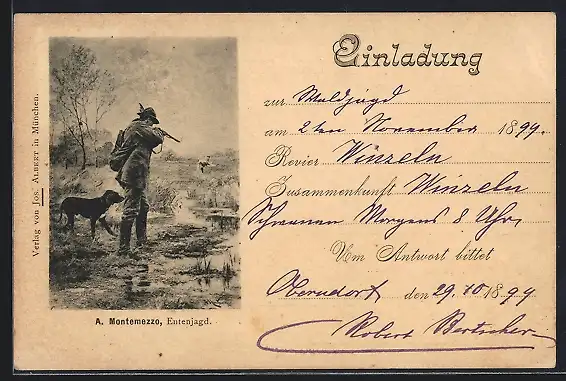 Einladung
zur Waldjagd
am 2ten November 1899.
Revier Winzeln
Zusammenkunft Winzeln
Morgens 8 Uhr,
Um Antwort bittet
Oberndorf den 29.10.1899
Robert Bertscher
A. Montemezzo, Entenjagd.
Verlag von Jos. Albert in München.